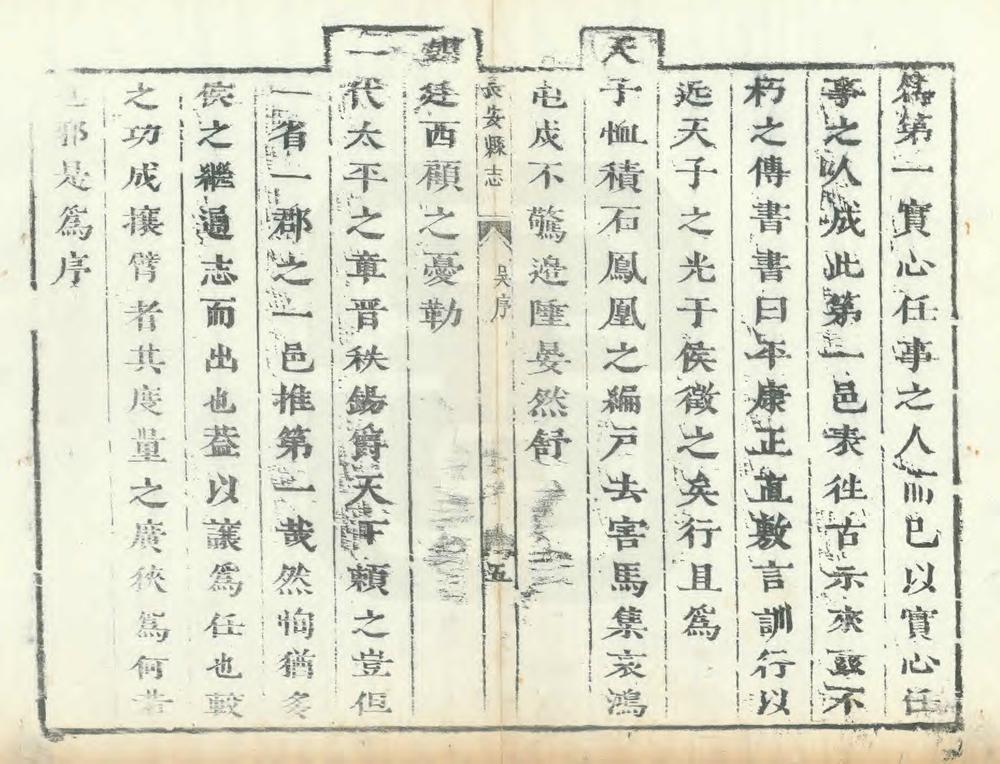 爲第一實心任事之人而已以實心任
事之人成此第一邑表徃古示來玆不
朽之傳書書曰平康正直敷言訓行以
近天子之光于侯徵之矣行且爲
天子恤積石鳳凰之編戸去害馬集哀鴻
屯戍不驚邉陲晏然舒
長安縣志
吳序
五
廷西顧之憂勒
一代太平之章晋秩錫爵天下頼之豈但
一省一郡之一邑推第一哉然恂猶多
侯之繼過志而出也葢以讓爲任也較
之功成攘臂者其度量之廣狹爲何若
邪是爲序